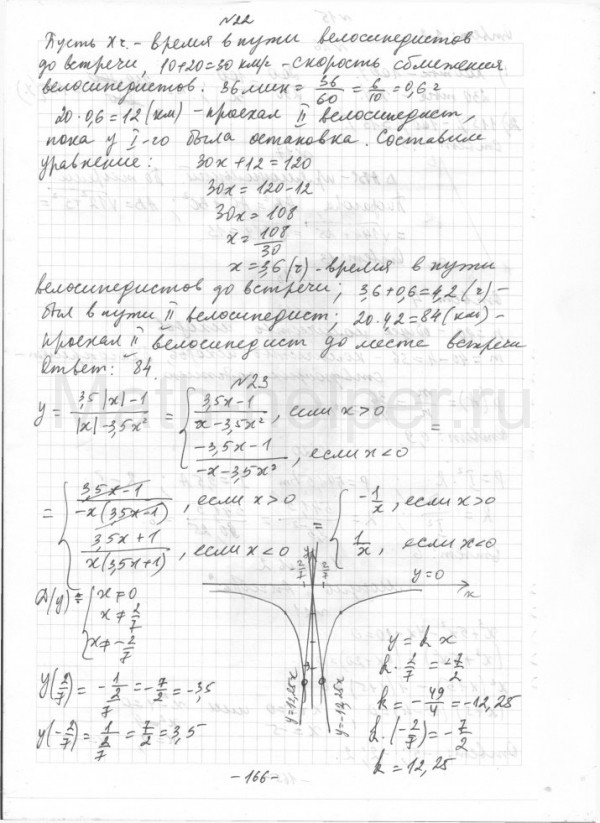 №22
Пусть x ч. - время в пути велосипедистов
до встречи, 10+20=30 км/ч - скорость сближения
велосипедистов. 36 мин = 36/60 = 6/10 = 0,6 ч
20·0,6=12 (км) - проехал II велосипедист,
пока у I-го была остановка. Составим
уравнение: 30x+12=120
30x=120-12
30x=108
x=108/30
x=3,6 (ч) - время в пути
велосипедистов до встречи; 3,6+0,6=4,2 (ч) -
был в пути II велосипедист; 20·4,2=84 (км) -
проехал II велосипедист до места встречи
Ответ: 84.
MathHelper.ru
№23
y = (3,5|x|-1)/(|x|-3,5x²) = { (3,5x-1)/(x-3,5x²), если x>0 =
(-3,5x-1)/(-x-3,5x²), если x<0
= { (3,5x-1)/(-x(3,5x-1)), если x>0 = { -1/x, если x>0
(3,5x+1)/(x(3,5x+1)), если x<0 1/x, если x<0
D(y) = { x≠0
x≠2/7
x≠-2/7
y=0
x
y=12,25x
y=-12,25x
y(2/7) = -1/(2/7) = -7/2 = -3,5
y(-2/7) = 1/(2/7) = 7/2 = 3,5
y=kx
k·2/7 = -7/2
k = -49/4 = -12,25
k·(-2/7) = -7/2
k=12,25
-166-